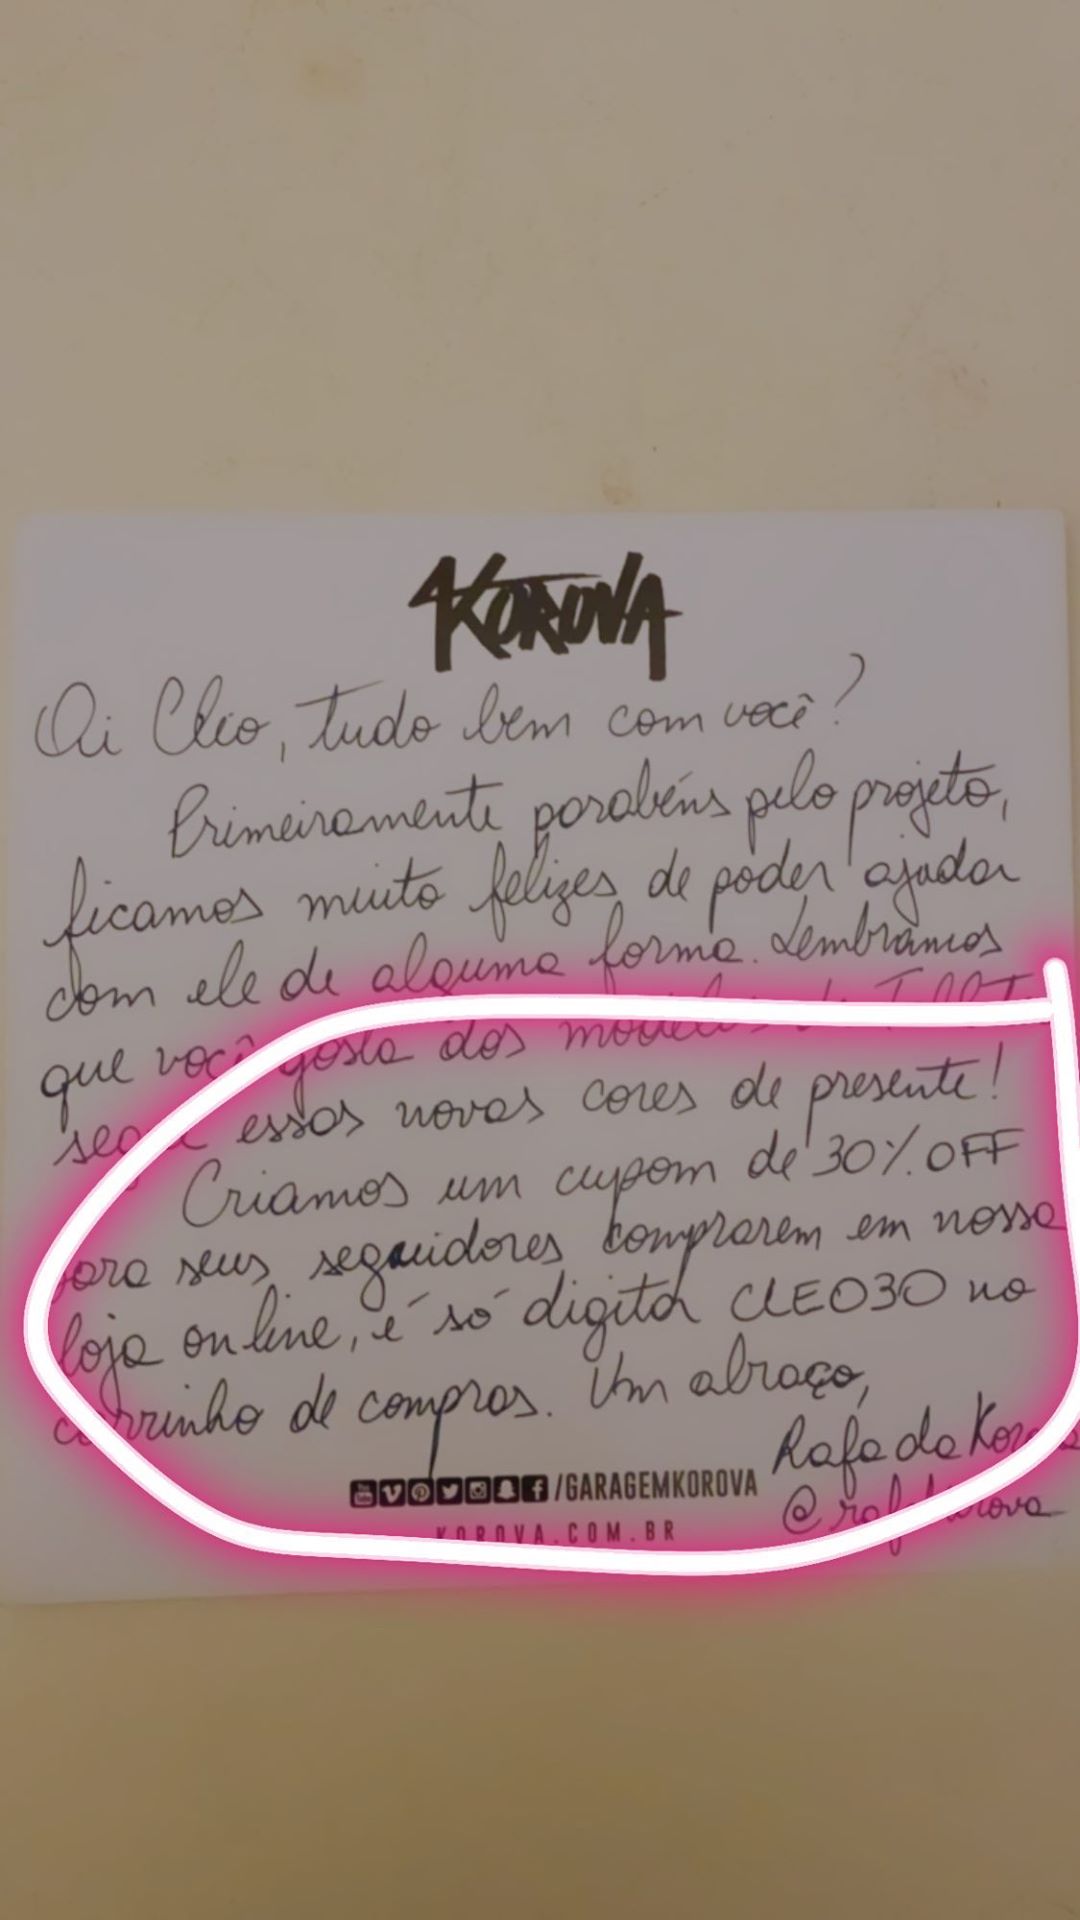 KOROVA
Oi Cleo, tudo bem com você?
Primeiramente parabéns pelo projeto,
ficamos muito felizes de poder ajudar
com ele de alguma forma. Lembramos
que você gosta dos modelos de
segue essas novas cores de presente!
Criamos um cupom de 30% OFF
para seus seguidores comprarem em nossa
loja online, é só digitar CLEO30 no
carrinho de compras. Um abraço,
Rafa da Korova
@rafakorova
/GARAGEMKOROVA
KOROVA.COM.BR